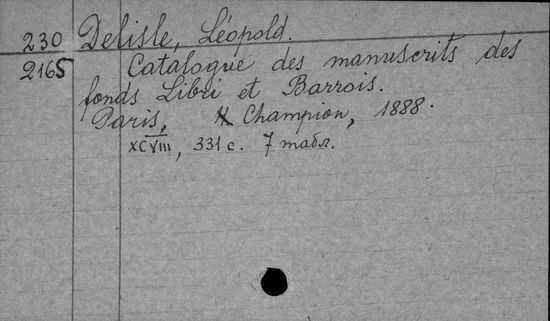 230 Delisle, Léopold.
2165 Catalogue des manuscrits des
fonds Libri et Barrois.
Paris, H. Champion, 1888.
XCVIII, 331 с. 7 табл.